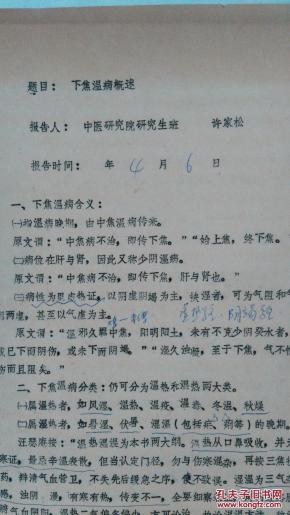 题目： 下焦温病概述
报告人： 中医研究院研究生班 许家松
报告时间： 年 4 月 6 日
一、下焦温病含义：
㈠为温病晚期，由中焦温病传来。
原文谓：“中焦病不治，即传下焦。”“始上焦，终下焦。
㈡病位在肝与肾，因此又称少阴温病。
原文谓：“中焦病不治，即传下焦，肝与肾也。”
㈢病性为里虚热证，以阴虚阴竭为主，挟湿者，可为气阻和气
阴两虚，甚至以气虚为主。
原文谓：“温邪久羁中焦，阳明阳土，未有不克少阴癸水者，
或已下而阴伤，或未下而阴竭。”“湿久浊留，至于下焦，气不
伤而且阻矣。”
二、下焦温病分类：仍可分为温热和湿热两大类。
㈠属温热者，如风温、温热、温疫、温毒、冬温、秋燥
㈡属湿热者，如暑温、伏暑、湿温（包括疟、痢等）的晚期。
汪瑟庵按：“温热湿温为本书两大纲。温热从口鼻吸收，并无
寒证，最忌辛温表散，但当认定门径，勿与伤寒混杂，再按三焦
药，辨清气血营卫，不失先后缓急之序，便不致误。湿温为三气
杂，浊阴，有寒有热，传变不一，全要